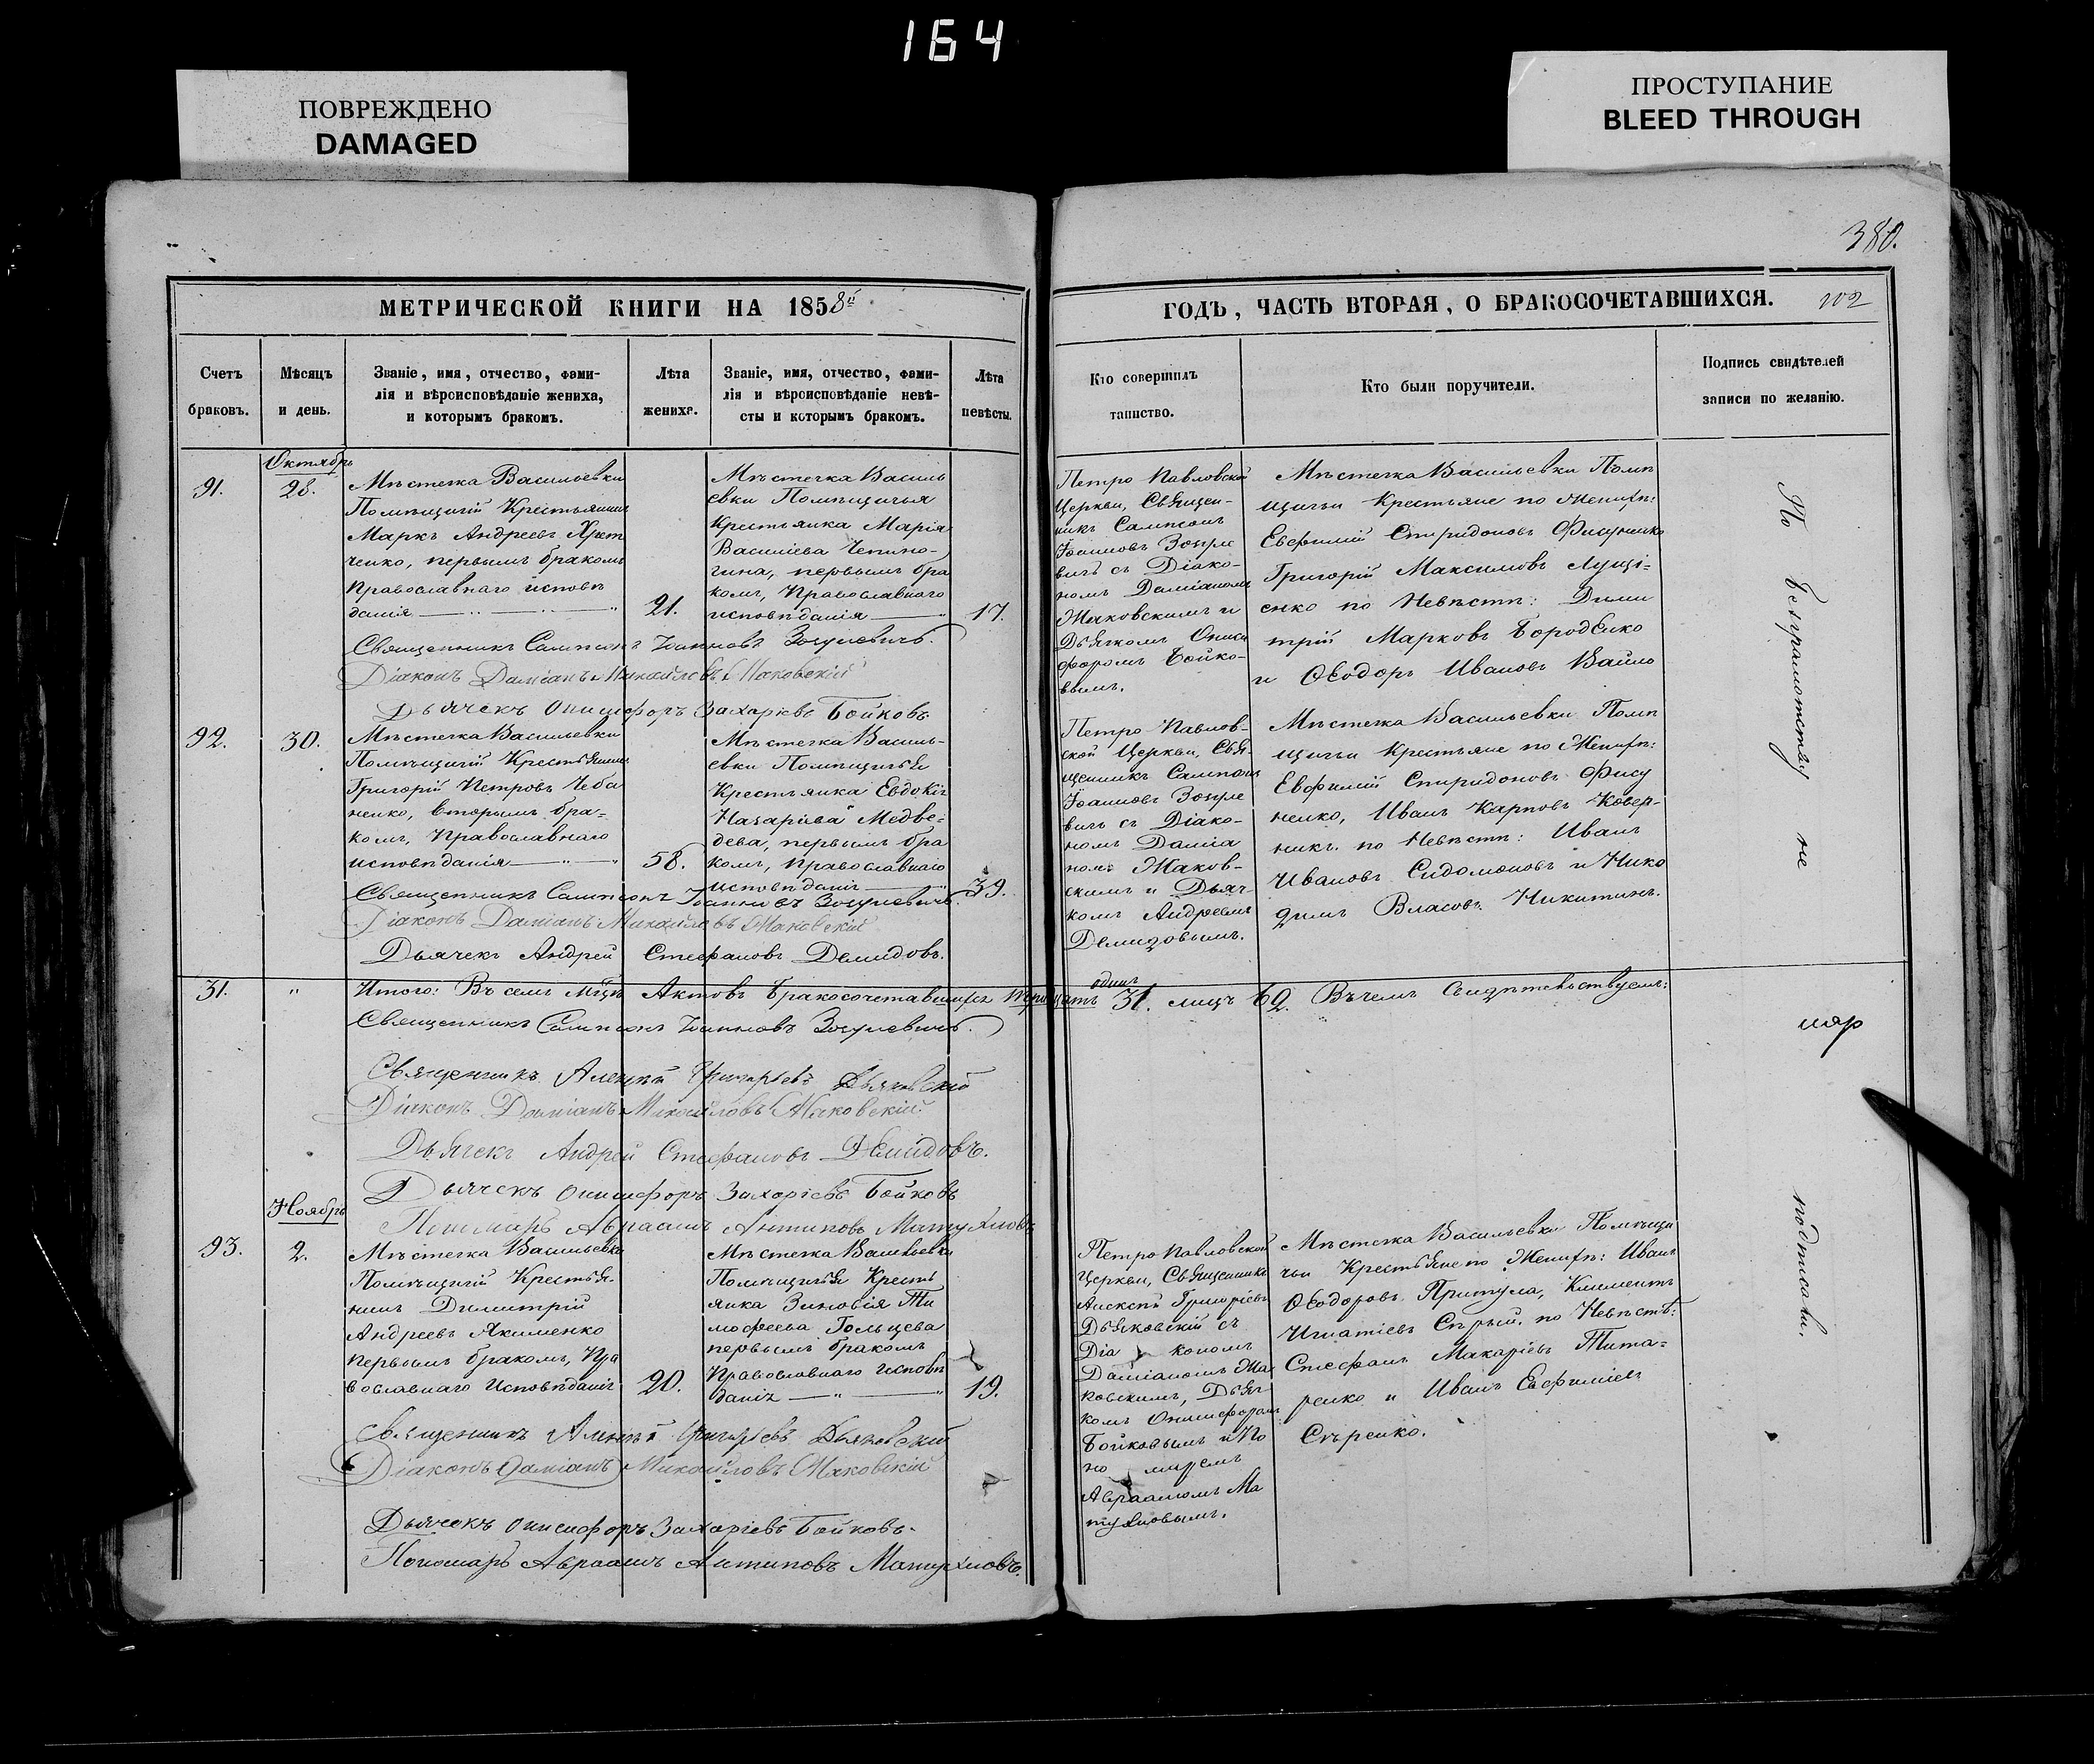 164
ПОВРЕЖДЕНО
DAMAGED
ПРОСТУПАНИЕ
BLEED THROUGH
380.
МЕТРИЧЕСКОЙ КНИГИ НА 1858й
Счетъ
браковъ.
Мѣсяцъ
и день.
Званіе, имя, отчество, фами-
лія и вѣроисповѣданіе жениха,
и которымъ бракомъ.
Лѣта
жениха.
Званіе, имя, отчество, фами-
лія и вѣроисповѣданіе невѣ-
сты и которымъ бракомъ.
Лѣта
невѣсты.
ГОДЪ, ЧАСТЬ ВТОРАЯ, О БРАКОСОЧЕТАВШИХСЯ. 102
Кто совершилъ
таинство.
Кто были поручители.
Подпись свидѣтелей
записи по желанію.
91.
Октябрь
28.
Мѣстечка Васильевки
Помѣщичій Крестьянинъ
Маркъ Андреевъ Хрот
ченко, первымъ бракомъ
Православнаго исповѣ
данія
21.
Мѣстечка Василь
евки Помѣщичья
Крестьянка Марія
Василіева Чепино-
гина, первымъ бра
комъ, Православнаго
исповѣданія
17.
Петро Павловской
Церкви, Священ-
никъ Сампсонъ
Іоанновъ Зосуле
вичъ съ Діако-
номъ Даміаномъ
Маковскимъ и
Дьячкомъ Ониси
форомъ Бойко-
вымъ.
Мѣстечка Васильевки Помѣ
щичьи Крестьяне по Женихѣ:
Евфимій Спиридоновъ Фисуненко
Григорій Максимовъ Луці-
енко по Невѣстѣ: Дими
трій Марковъ Бороденко
и Ѳеодоръ Ивановъ Вайло
Священникъ Сампсонъ Іоанновъ Зосулевичъ.
Діаконъ Даміанъ Михайловъ Маковскій
Дьячекъ Онисифоръ Захаріевъ Бойковъ
92.
30.
Мѣстечка Васильевки
Помѣщичій Крестьянинъ
Григорій Петровъ Чеба
ненко, вторымъ бра-
комъ, Православнаго
исповѣданія
58.
Мѣстечка Василь-
евки Помѣщичья
Крестьянка Евдокія
Назаріева Медве-
дева, первымъ бра
комъ, Православнаго
исповѣданія
39.
Петро Павлов-
ской Церкви, Свя-
щенникъ Сампсонъ
Іоанновъ Зосуле
вичъ съ Діако-
номъ Даміа
номъ Маков-
скимъ и Дьяч-
комъ Андреемъ
Демидовымъ.
Мѣстечка Васильевки Помѣ
щичьи Крестьяне по Женихѣ:
Евфимій Спиридоновъ Фису
ненко, Иванъ Карповъ Ковер-
никъ. по Невѣстѣ: Иванъ
Ивановъ Сидомоновъ и Нико
димъ Власовъ Никитинъ.
Священникъ Сампсонъ Іоанновъ Зосулевичъ.
Діаконъ Даміанъ Михайловъ Маковскій
Дьячекъ Андрей Стефановъ Демидовъ.
31. " Итого: Въ семъ Мцѣ Актовъ Бракосочетавшихся тридцать одинъ 31. лицъ 62. Въ чемъ Свидѣтельствуемъ:
Священникъ Сампсонъ Іоанновъ Зосулевичъ.
Священникъ Алексѣй Григорьевъ Дьяковскій
Діаконъ Даміанъ Михайловъ Маковскій
Дьячекъ Андрей Стефановъ Демидовъ.
Дьячекъ Онисифоръ Захаріевъ Бойковъ
Пономарь Авраамъ Антиповъ Матухновъ
93.
Ноябрь
2.
Мѣстечка Васильевки
Помѣщичій Крестья-
нинъ Димитрій
Андреевъ Якименко
первымъ бракомъ, Пра
вославнаго Исповѣданія
20.
Мѣстечка Васильевки
Помѣщичья Кресть
янка Зиновія Ти
мофеева Гольцева
первымъ бракомъ
Православнаго исповѣ
данія
19.
Петро Павловской
Церкви, Священникъ
Алексѣй Григоріевъ
Дьяковскій съ
Діа кономъ
Даміаномъ Ма
ковскимъ, Дьяч-
комъ Онисифоромъ
Бойковымъ и По
но маремъ
Авраамомъ Ма
тухновымъ.
Мѣстечка Васильевки Помѣщи
чьи Крестьяне по Женихѣ: Иванъ
Ѳеодоровъ Притула, Климентъ
Игнатіевъ Сѣрый. по Невѣстѣ:
Стефанъ Макаріевъ Тита-
ренко и Иванъ Евфиміевъ
Сѣренко.
Священникъ Алексѣй Григорьевъ Дьяковскій
Діаконъ Даміанъ Михайловъ Маковскій
Дьячекъ Онисифоръ Захаріевъ Бойковъ.
Пономарь Авраамъ Антиповъ Матухновъ.
По безграмотству не
подписали.